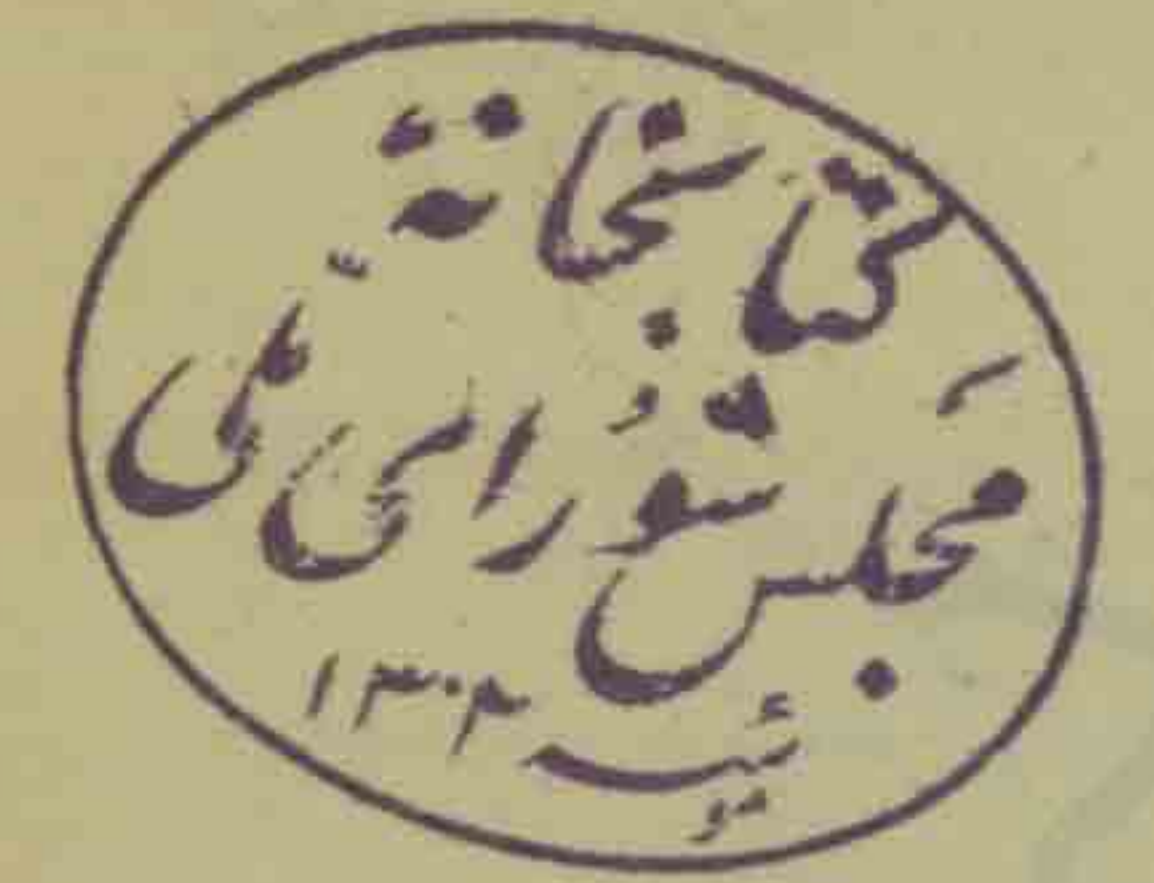 کتابخانهٔ
مَجلس شوُرای ملّی
۱۳۰۲